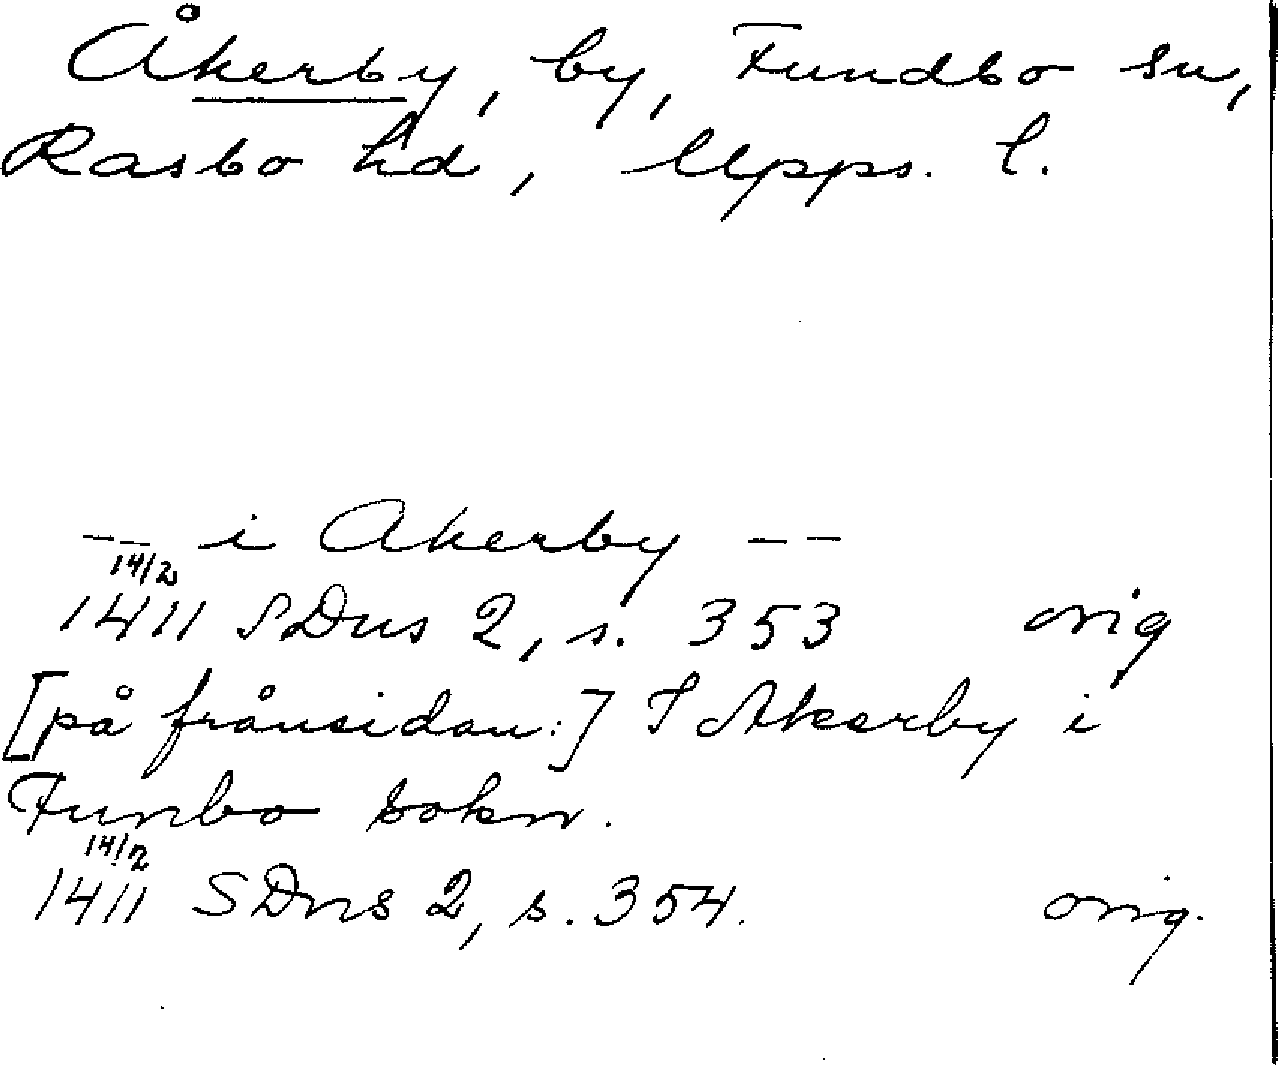 Åkerby, by, Fundbo sn,
Rasbo hd, Upps. l.
-- i Akerby --
14/2
1411 SDns 2, s. 353 orig
[på frånsidan:] I Akerby i
Funbo sokn.
14/2
1411 SDns 2, s. 354. orig.